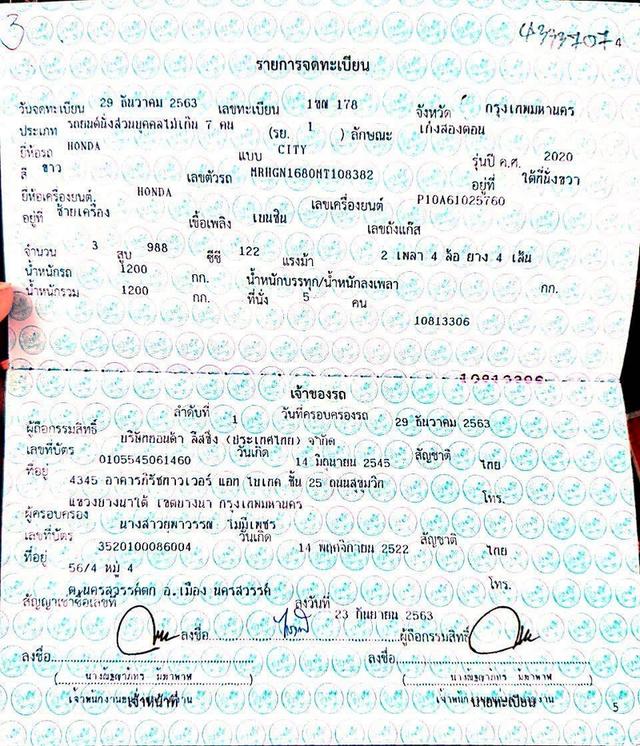 3
4
รายการจดทะเบียน
วันจดทะเบียน 29 ธันวาคม 2563 เลขทะเบียน 1ขณ 178 จังหวัด กรุงเทพมหานคร
ประเภท รถยนต์นั่งส่วนบุคคลไม่เกิน 7 คน (รย. 1 ) ลักษณะ เก๋งสองตอน
ยี่ห้อรถ HONDA แบบ CITY รุ่นปี ค.ศ. 2020
สี ขาว เลขตัวรถ MRHGN1680MT108382 อยู่ที่ ใต้ที่นั่งขวา
ยี่ห้อเครื่องยนต์ HONDA เลขเครื่องยนต์ P10A61025760
อยู่ที่ ซ้ายเครื่อง เชื้อเพลิง เบนซิน เลขถังแก๊ส
จำนวน 3 สูบ 988 ซีซี 122 แรงม้า 2 เพลา 4 ล้อ ยาง 4 เส้น
น้ำหนักรถ 1200 กก. น้ำหนักบรรทุก/น้ำหนักลงเพลา กก.
น้ำหนักรวม 1200 กก. ที่นั่ง 5 คน
10813306
เจ้าของรถ
ลำดับที่ 1 วันที่ครอบครองรถ 29 ธันวาคม 2563
ผู้ถือกรรมสิทธิ์ บริษัทฮอนด้า ลีสซิ่ง (ประเทศไทย) จำกัด
เลขที่บัตร 0105545061460 วันเกิด 14 มิถุนายน 2545 สัญชาติ ไทย
ที่อยู่ 4345 อาคารภิรัชทาวเวอร์ แอท ไบเทค ชั้น 25 ถนนสุขุมวิท
แขวงบางนาใต้ เขตบางนา กรุงเทพมหานคร โทร.
ผู้ครอบครอง นางสาวยุพาวรรณ
เลขที่บัตร 3520100086004 วันเกิด 14 พฤศจิกายน 2522 สัญชาติ ไทย
ที่อยู่ 56/4 หมู่ 4
ต.นครสวรรค์ตก อ.เมือง นครสวรรค์ โทร.
สัญญาเช่าซื้อเลขที่ ลงวันที่ 23 กันยายน 2563
ลงชื่อ ผู้ถือกรรมสิทธิ์
ลงชื่อ ลงชื่อ
เจ้าหน้าที่ นายทะเบียน
5